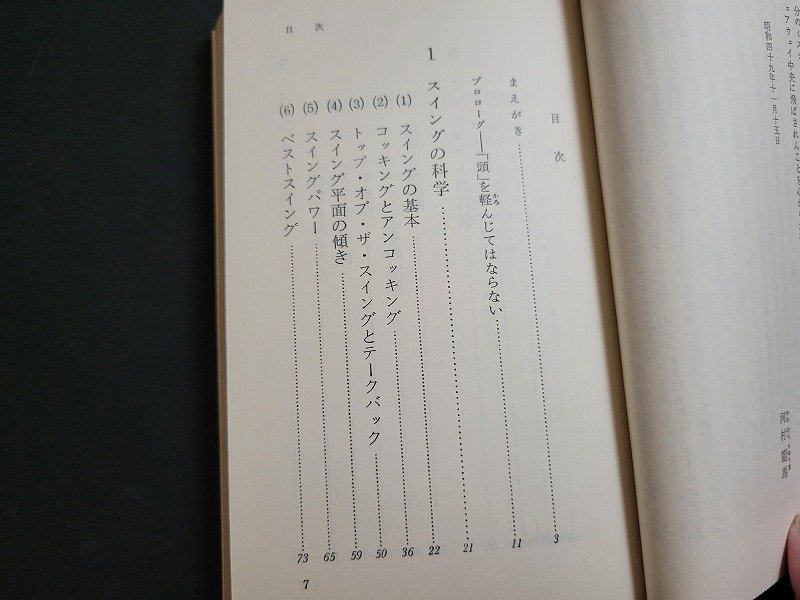 ェアウェイ中央に飛ばされんことを
昭和四十九年十一月十五日
河村龍馬
目次
まえがき 3
プロローグ――「頭」を軽んじてはならない 11
1 スイングの科学 21
(1) スイングの基本 22
(2) コッキングとアンコッキング 36
(3) トップ・オブ・ザ・スイングとテークバック 50
(4) スイング平面の傾き 59
(5) スイングパワー 65
(6) ベストスイング 73
目次
7